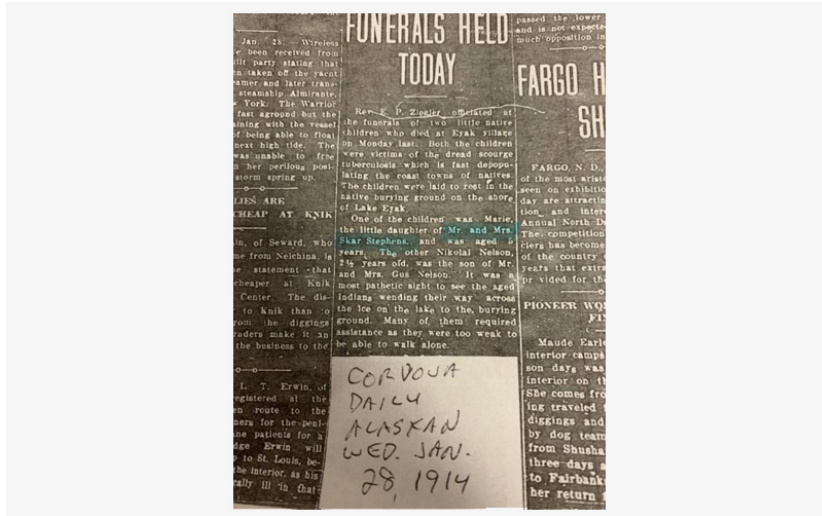 Jan. 28.—Wireless
been received from
party stating that
taken off the yacht
and later trans-
steamship Almirante,
York. The Warrior
fast aground but the
with the vessel
of being able to float
next high tide. The
was unable to free
her perilous posi-
storm spring up.
ARE
CHEAP AT KNIK
of Seward, who
from Nelchina, is
statement that
cheaper at Knik
Center. The dis-
to Knik than to
the diggings
make it an
the business to the
L. T. Erwin, of
registered at the
en route to the
for the
patients for a
Erwin will
to St. Louis, be-
the interior, as his
ill in that
FUNERALS HELD
TODAY
Rev. E. P. Ziegler officiated at
the funerals of two little native
children who died at Eyak village
on Monday last. Both the children
were victims of the dread scourge
tuberculosis which is fast depopu-
lating the coast towns of natives.
The children were laid to rest in the
native burying ground on the shore
of Lake Eyak.
One of the children was Marie,
the little daughter of Mr. and Mrs.
Skar Stephens, and was aged
years. The other Nikolai Nelson,
2½ years old, was the son of Mr.
and Mrs. Gus Nelson. It was a
most pathetic sight to see the aged
Indians wending their way across
the ice on the lake to the burying
ground. Many of them required
assistance as they were too weak to
be able to walk alone.
CORDOVA
DAILY
ALASKAN
WED. JAN.
28, 1914
passed the lower
and is not
much opposition in
FARGO H
SH
FARGO, N. D.,
of the most
seen on
day are
tion and
Annual North D
The competition
has become
of the country
years that
for the
PIONEER WO
FI
Maude
interior
son days was
interior on
She comes
ing traveled
diggings and
by dog team
from
three days
to Fairbank
her return